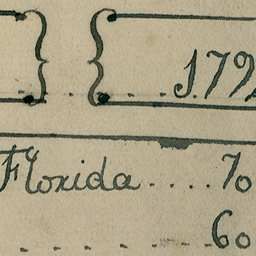 1.79
Florida ..... 70
60